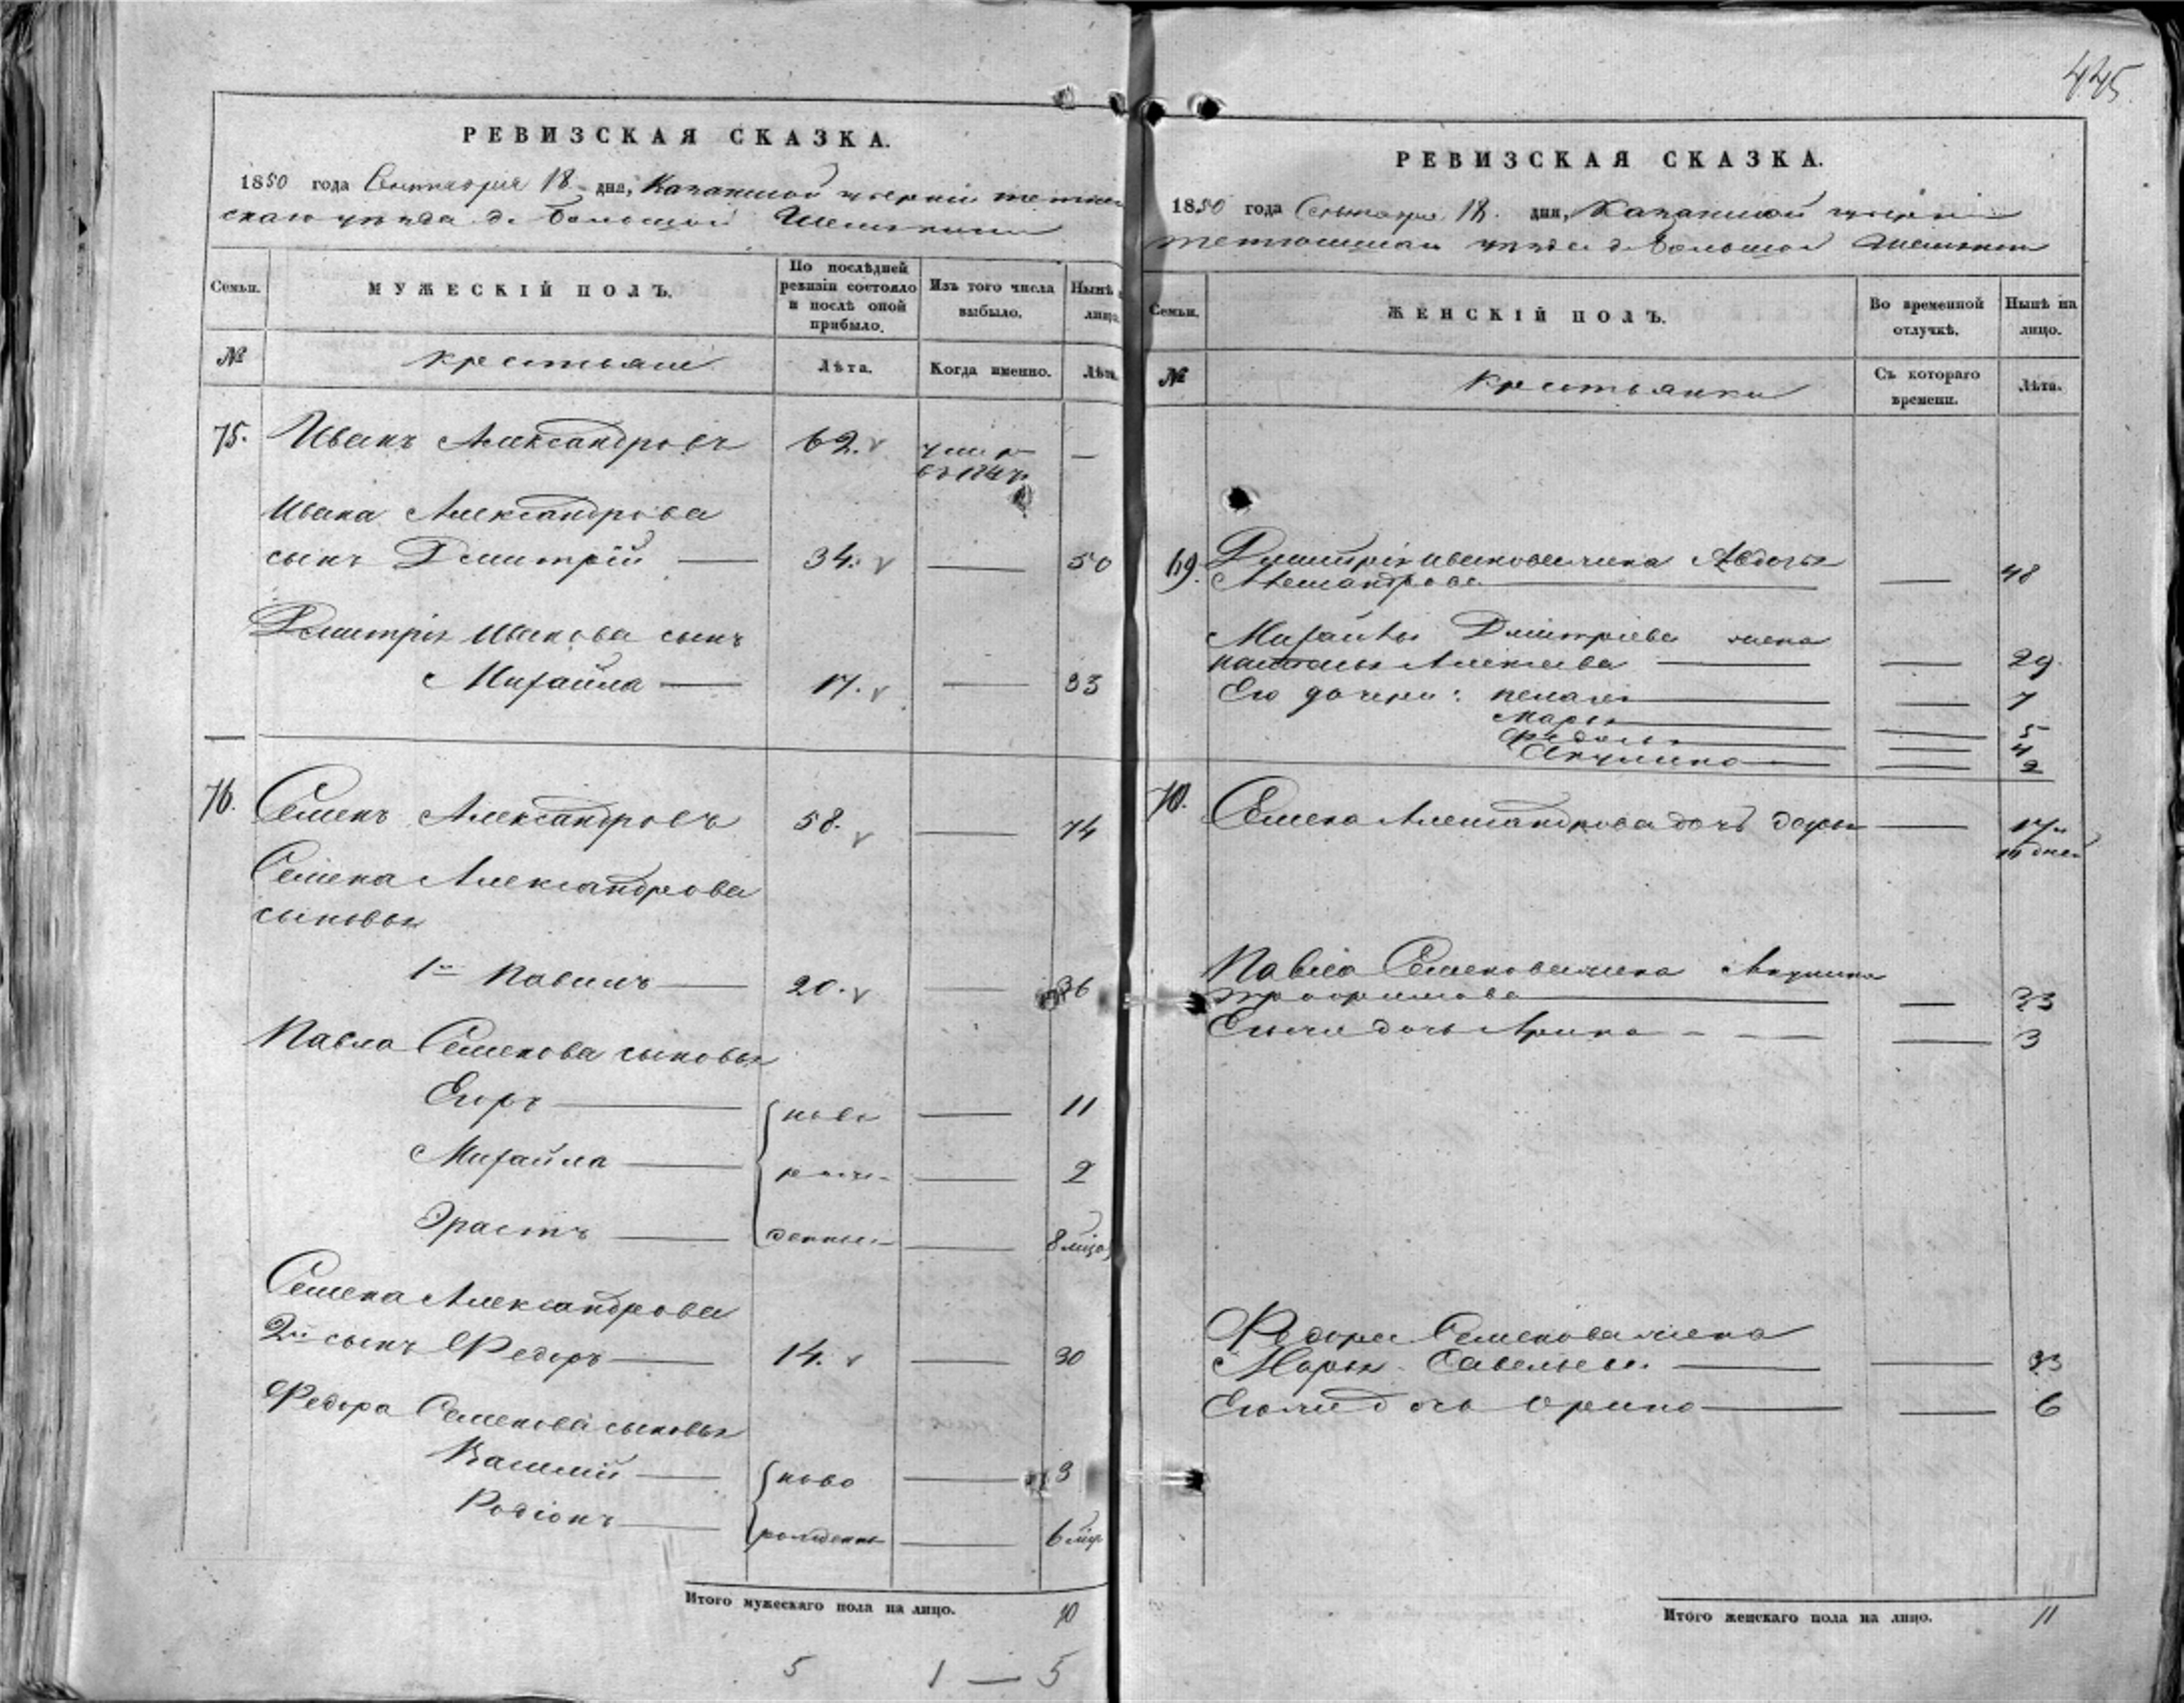 РЕВИЗСКАЯ СКАЗКА.
1850 года Сентября 18 дня, Казанской губернии тетюш
скаго уезда д. Большой Шемякиной
Семьи.
МУЖЕСКІЙ ПОЛЪ.
По послѣдней ревизіи состояло и послѣ оной прибыло.
Изъ того числа выбыло.
Нынѣ лицо.
№
крестьяне
Лѣта.
Когда именно.
Лѣта.
75. Иванъ Александровъ 62. умер —
въ 184
Ивана Александрова
сынъ Дмитрій — 34. — 50
Дмитрія Иванова сынъ
Михайла — 17. — 33
76. Семенъ Александровъ 58. — 74
Семена Александрова
сыновья
1й Павелъ — 20. — 36
Павла Семенова сыновья
Егоръ — ново — 11
Михайла — рож — 2
Эрастъ — денные — 8 мѣс
Семена Александрова
2й сынъ Федоръ — 14. — 30
Федора Семенова сыновья
Василій — ново — 3
Родіонъ — рожденные — 6 мѣс
Итого мужескаго пола на лицо. 10
5 1 — 5
445
РЕВИЗСКАЯ СКАЗКА.
1850 года Сентября 18. дня, Казанской губерніи
тетюшскаго уезда д. Большой Шемякиной
Семьи.
ЖЕНСКІЙ ПОЛЪ.
Во временной отлучкѣ.
Нынѣ на лицо.
№
крестьянки
Съ котораго времени.
Лѣта.
69. Дмитрія Иванова жена Авдотья
Александрова — — 48
Михайлы Дмитріева жена
Наталья Алексеева — — 29.
Его дочери: Пелагея — — 7
Марья — — 5
Федосья — — 4
Акулина — — 2
70. Семена Александрова дочь — 17
дней
Павла Семенова жена Акулина
трофимова — — 33
Ея же дочь Арина — — 3
Федора Семенова жена
Марья Савельева — — 33
Ея же дочь Орина — — 6
Итого женскаго пола на лицо. 11